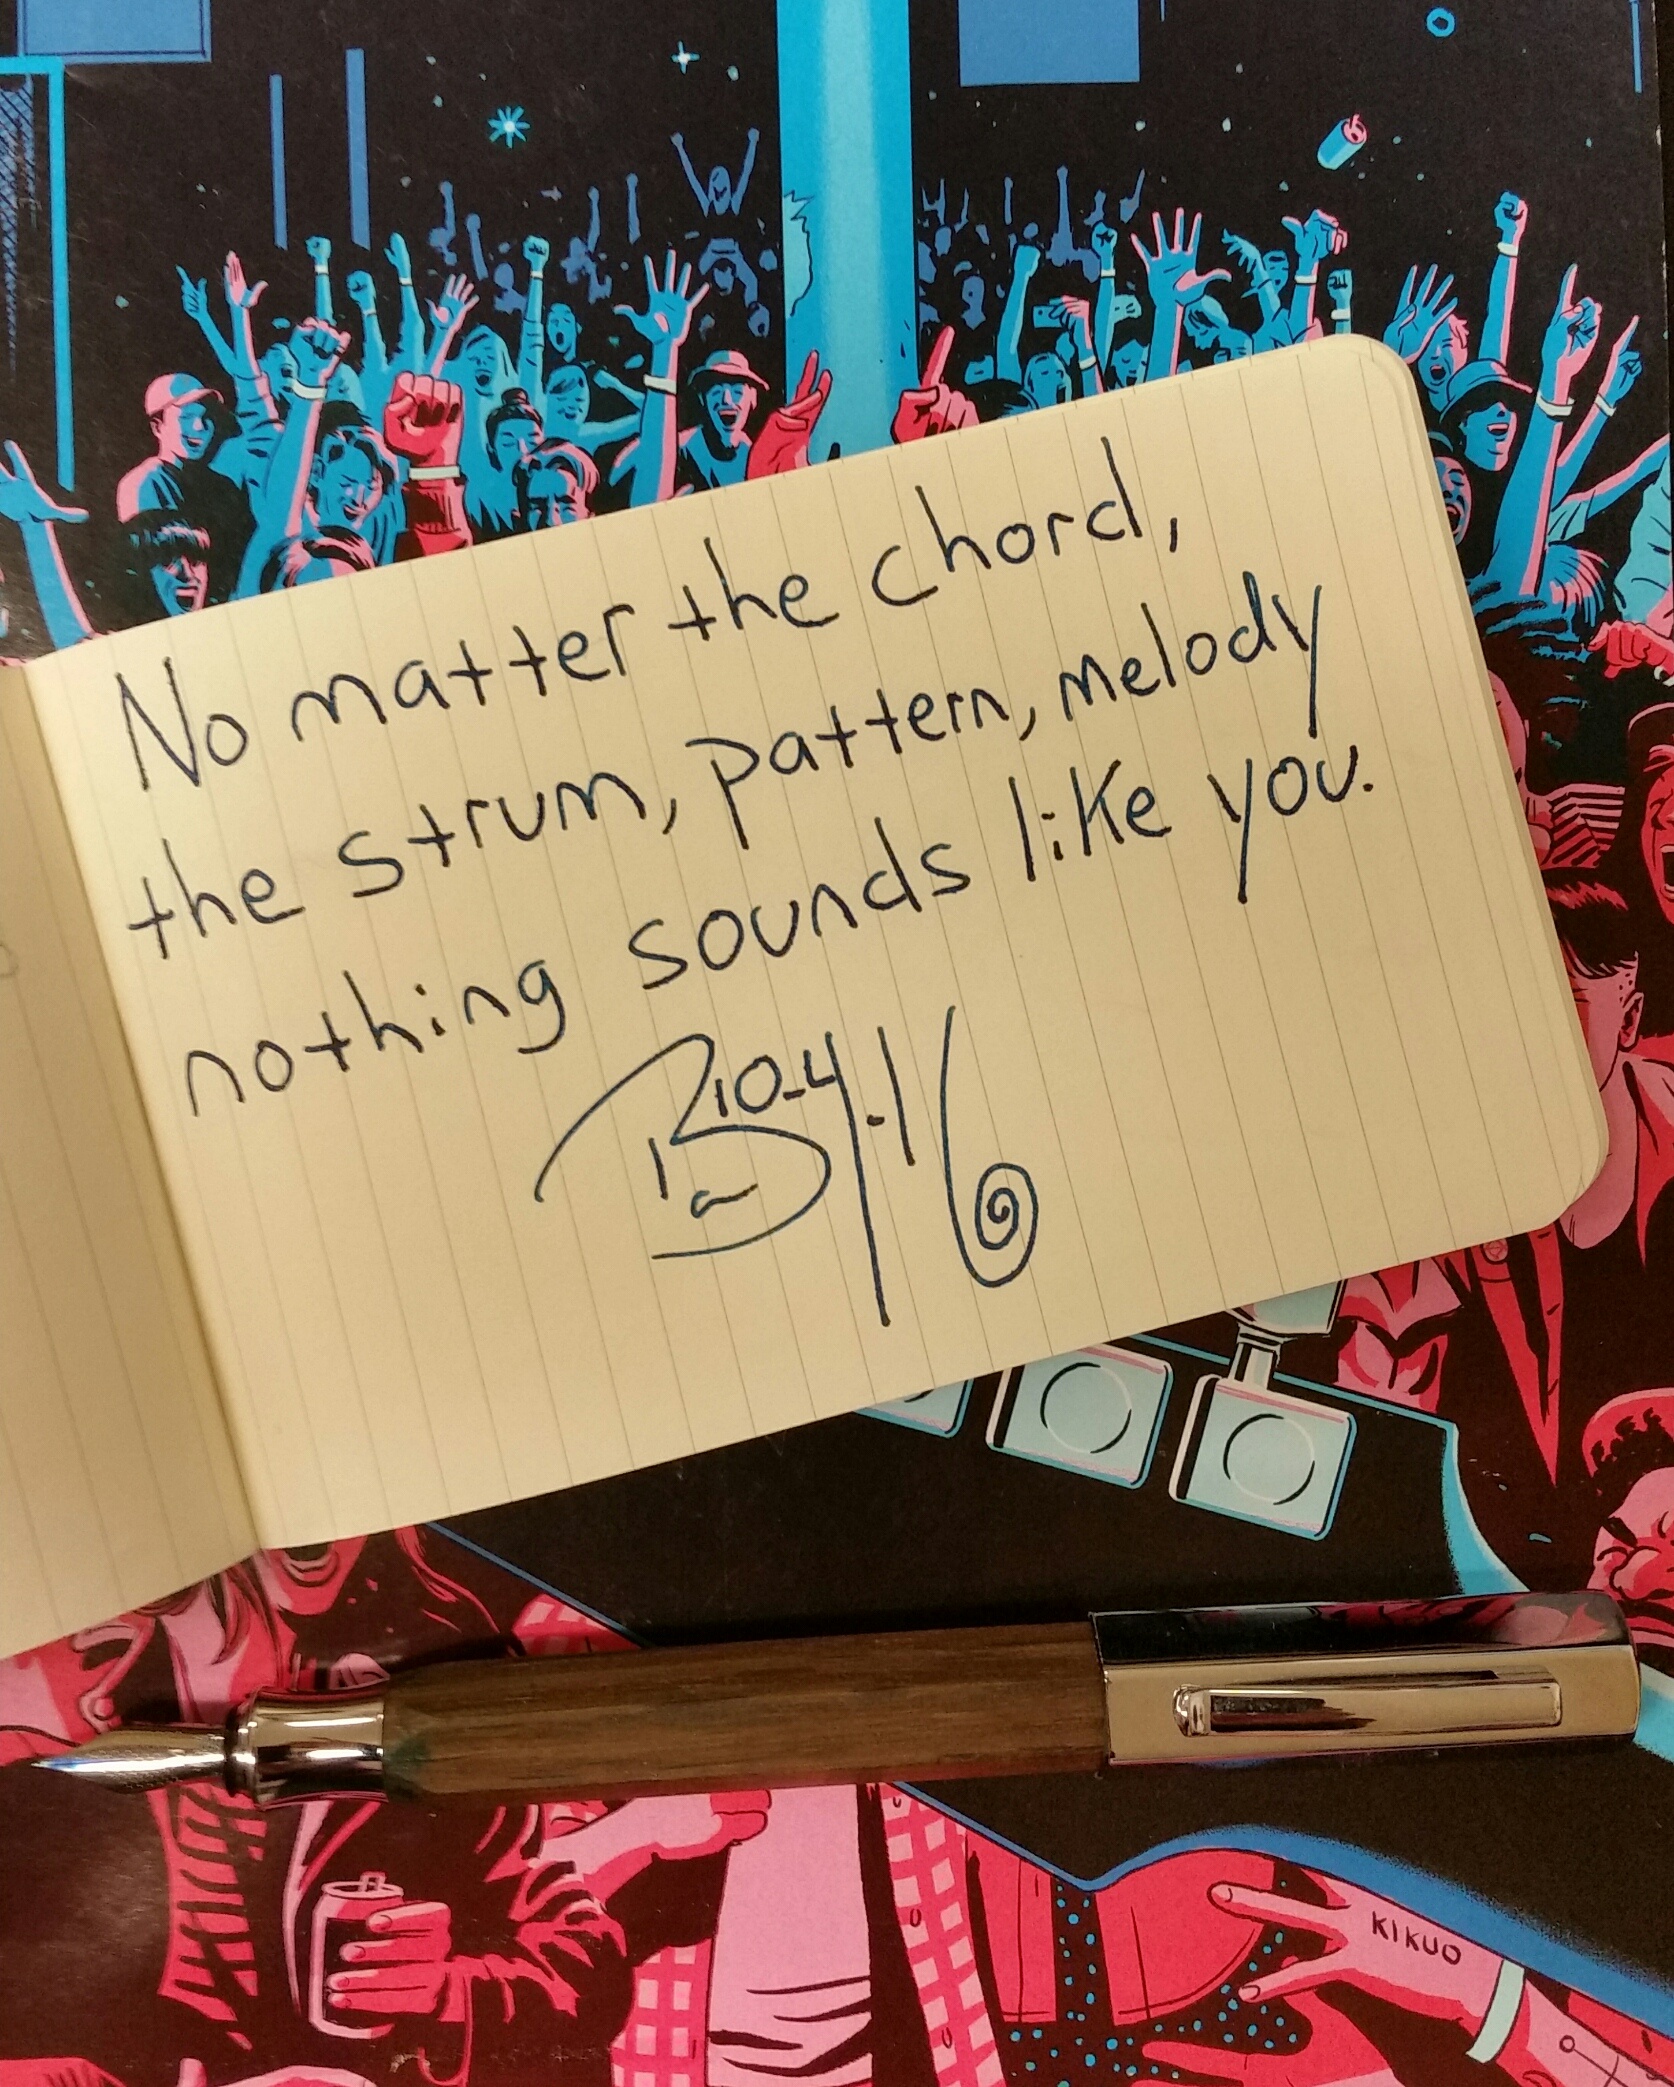 No matter the chord,
the strum, pattern, melody
nothing sounds like you.
10-4-16
KIKUO